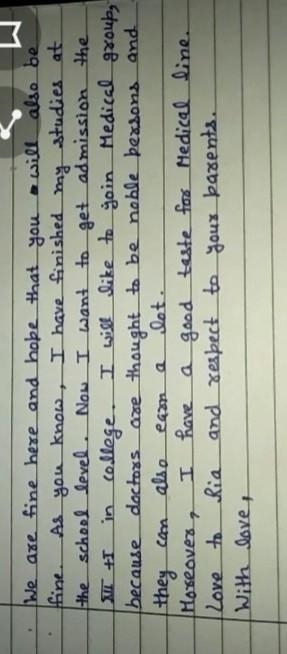 We are fine here and hope that you will also be
fine. As you know, I have finished my studies at
the school level. Now I want to get admission the
XII +I in college. I will like to join Medical group,
because doctors are thought to be noble persons and
they can also earn a lot.
Moreover, I have a good taste for Medical line.
Love to Ria and respect to your parents.
With love,